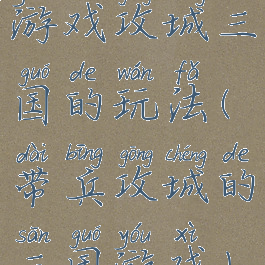 游戏攻城三
guó de wán fǎ
国的玩法(
dài bīng gōng chéng de
带兵攻城的
sān guó yóu xì
三国游戏)